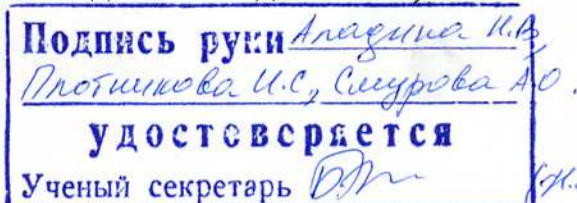 Подпись руки Аладина Н.В.,
Плотникова И.С., Смурова А.О.
удостоверяется
Ученый секретарь